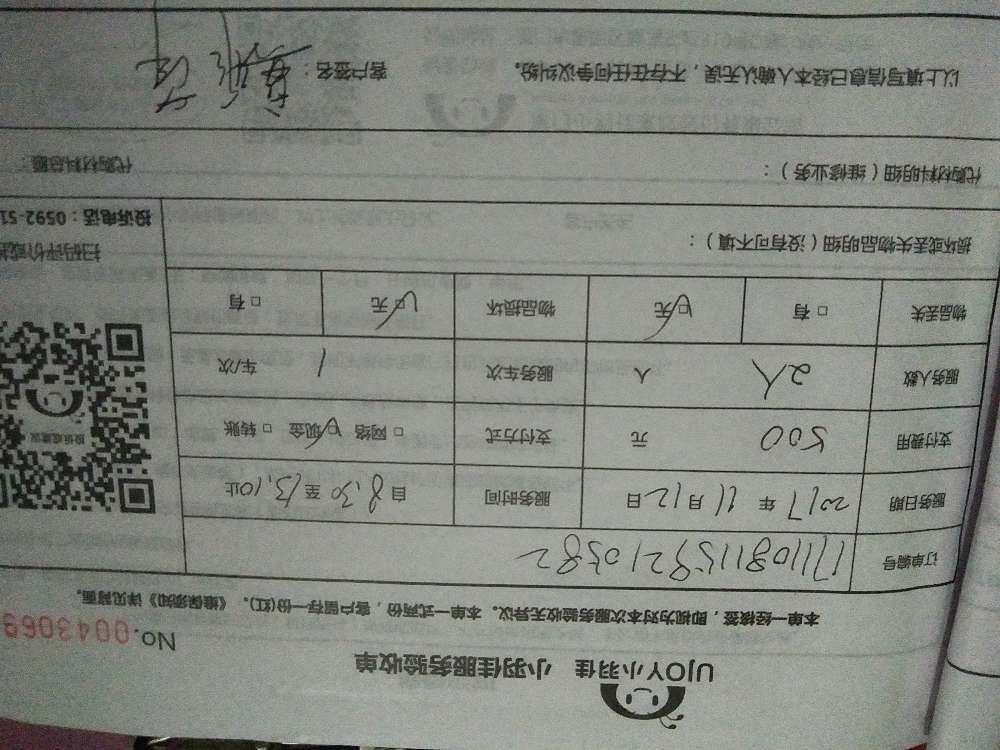 UJOY小羽佳 小羽佳服务验收单
No.0043069
本单一经核签，即视为对本次服务验收无异议。本单一式两份，客户留存一份(红)。《维保须知》详见背面。
订单编号
服务日期 2017 年 11 月 12 日 服务时间 自 8:30 至 13:10止
支付费用 500 元 支付方式 □ 网络 □ 现金 □ 转账
服务人数 2人 人 服务车次 1 车/次
物品丢失 □ 有 □ 无 物品损坏 □ 无 □ 有
投诉或建议
扫码评价或
投诉电话：0592-51
损坏或丢失物品明细（没有可不填）：
代购材料明细（维修业务）： 代购材料总额：
以上填写信息已经本人确认无误，不存在任何争议纠纷。 客户签名：